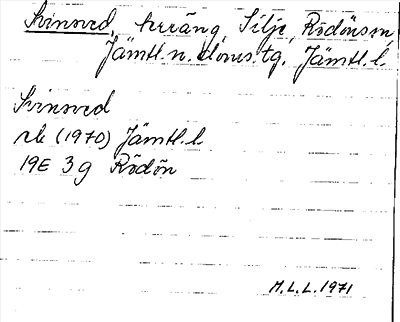 Svinsved, terräng, Silje, Rödöns sn,
Jämtl. n. doms. tg. Jämtl. l.
Svinsved
rb (1970) Jämtl. l.
19E 3g Rödön
M.L.L. 1971